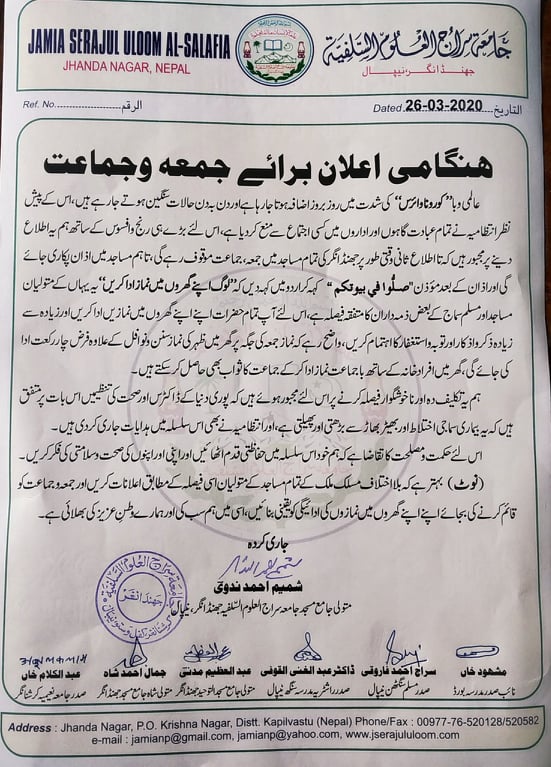 JAMIA SERAJUL ULOOM AL-SALAFIA
JHANDA NAGAR, NEPAL
جامعة سراج العلوم السلفية
جھنڈانگر، نيبال
Ref. No. الرقم
Dated 26-03-2020 التاريخ
ھنگامی اعلان برائے جمعہ وجماعت
عالمی وبا ”کورونا وائرس“ کی شدت میں روز بروز اضافہ ہوتا جارہا ہے اور دن بہ دن حالات سنگین ہوتے جارہے ہیں، اس کے پیش
نظر انتظامیہ نے تمام عبادت گاہوں اور اداروں میں کسی اجتماع سے منع کردیا ہے، اس لئے بڑے ہی رنج وافسوس کے ساتھ ہم یہ اطلاع
دینے پر مجبور ہیں کہ تا اطلاع ثانی وقتی طور پر جھنڈانگر کی تمام مساجد میں جمعہ، جماعت موقوف رہے گی، تاہم مساجد میں اذان پکاری جائے
گی اور اذان کے بعد مؤذن ”صلُّوا في بيوتكم“ کہہ کر اردو میں کہہ دیں کہ ”لوگ اپنے گھروں میں نماز ادا کریں“ یہ یہاں کے متولیان
مساجد اور مسلم سماج کے بعض ذمہ داران کا متفقہ فیصلہ ہے، اس لئے آپ تمام حضرات اپنے اپنے گھروں میں نمازیں ادا کریں اور زیادہ سے
زیادہ ذکر واذکار اور توبہ واستغفار کا اہتمام کریں، واضح رہے کہ نماز جمعہ کی جگہ پر گھر میں ظہر کی نماز سنن ونوافل کے علاوہ فرض چار رکعت ادا
کی جائے گی، گھر میں افراد خانہ کے ساتھ با جماعت نماز ادا کر کے جماعت کا ثواب بھی حاصل کرسکتے ہیں۔
ہم یہ تکلیف دہ اور ناخوشگوار فیصلہ کرنے پر اس لئے مجبور ہوئے ہیں کہ پوری دنیا کے ڈاکٹرس اور صحت کی تنظیمیں اس بات پر متفق
ہیں کہ یہ بیماری سماجی اختلاط اور بھیڑ بھاڑ سے بڑھتی اور پھیلتی ہے، اور انتظامیہ نے بھی اس سلسلہ میں ہدایات جاری کردی ہیں۔
اس لئے حکمت ومصلحت کا تقاضا ہے کہ ہم خود اس سلسلہ میں حفاظتی قدم اٹھائیں اور اپنی اور اپنوں کی صحت وسلامتی کی فکر کریں۔
(نوٹ) بہتر ہے کہ بلا اختلاف مسلک ملک کے تمام مساجد کے متولیان اسی فیصلہ کے مطابق اعلانات کریں اور جمعہ وجماعت کو
قائم کرنے کی بجائے اپنے اپنے گھروں میں نمازوں کی ادائیگی کو یقینی بنائیں، اسی میں ہم سب کی اور ہمارے وطن عزیز کی بھلائی ہے۔
جاری کردہ
شمیم احمد ندوی
متولی جامع مسجد جامعہ سراج العلوم السلفیہ جھنڈانگر، نیپال
جامعة سراج العلوم السلفية
جھندانغر
مشہود خاں
نائب صدر مدرسہ بورڈ
سراج احمد فاروقی
صدر مسلم سنگٹھن نیپال
ڈاکٹر عبد الغنی القوفی
صدر راشٹریہ مدرسہ سنگھ نیپال
عبد العظیم مدنی
متولی جامع مسجد التوحید جھنڈانگر
جمال احمد شاہ
متولی شاہ جامع مسجد جھنڈانگر
عبد الکلام خاں
صدر جامعہ نعیمیہ کرشنانگر
Address : Jhanda Nagar, P.O. Krishna Nagar, Distt. Kapilvastu (Nepal) Phone/Fax : 00977-76-520128/520582
e-mail : jamianp@gmail.com, jamianp@yahoo.com, www.jserajululoom.com